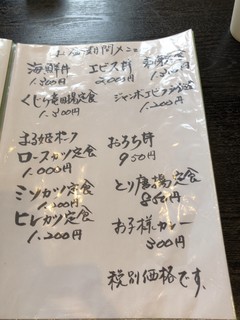 海鮮丼 エビス丼
1.300円 2,000円 1,300円
くじら竜田揚定食 ジャンボエビフライ定食
1,300円 1.200円
まる姫ポーク おろち丼
ロースカツ定食 950円
1.000円
ミソカツ定食 とり唐揚定食
1,200円 850円
ヒレカツ定食 お子様カレー
1.200円 300円
税別価格です。